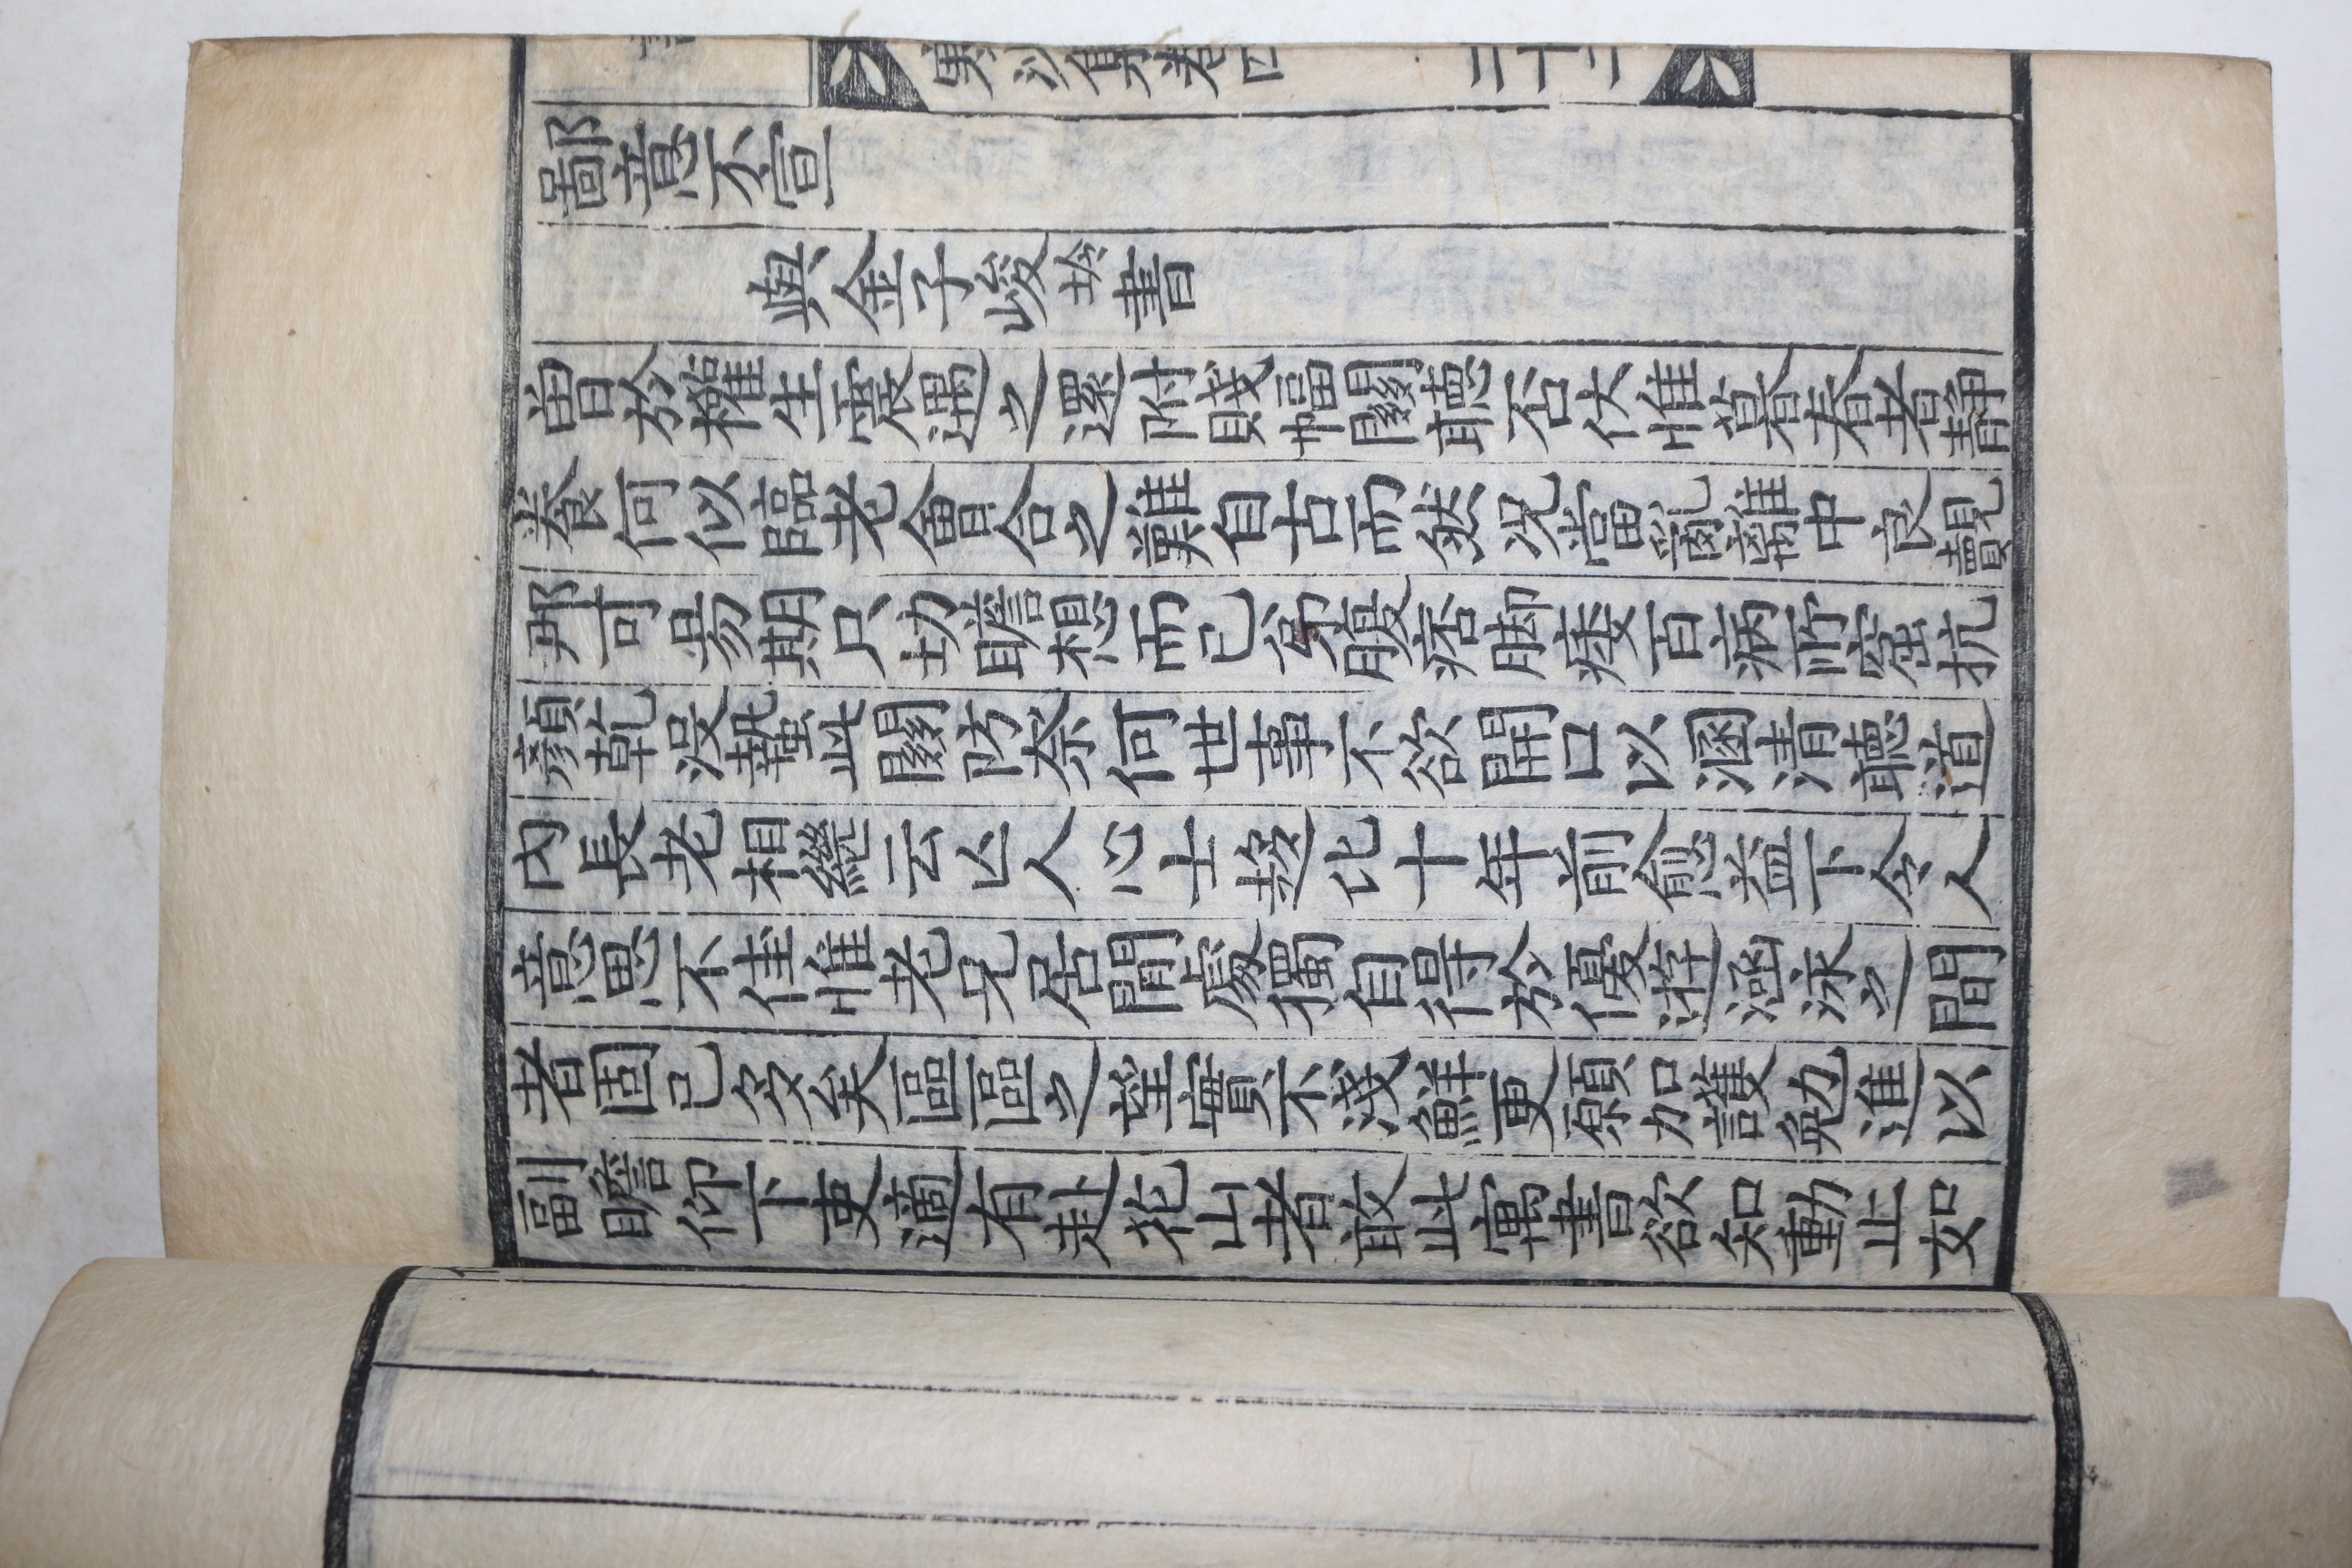 寒沙集卷四 二十二
鄙意不宣
與金子峻坽書
曽於權生震遇之還附賤幅關聽否伏惟暮春者静
養何似臨老會合之難自古而然况當亂離中良覿
那可易期只切瞻想而已弟腹痞脚痿百病所窟抗
顏乾没蟄此關防奈何世事不欲開口以溷清聽道
內長老相繼云亡人心士趍化十年前愈益下令人
意思不佳惟老兄居閒處獨自得於優遊涵泳之間
者固已多矣區區之望實不淺鮮更願加護勉進以
副瞻仰下吏適有赴花山者敢此寓書欲知動止如